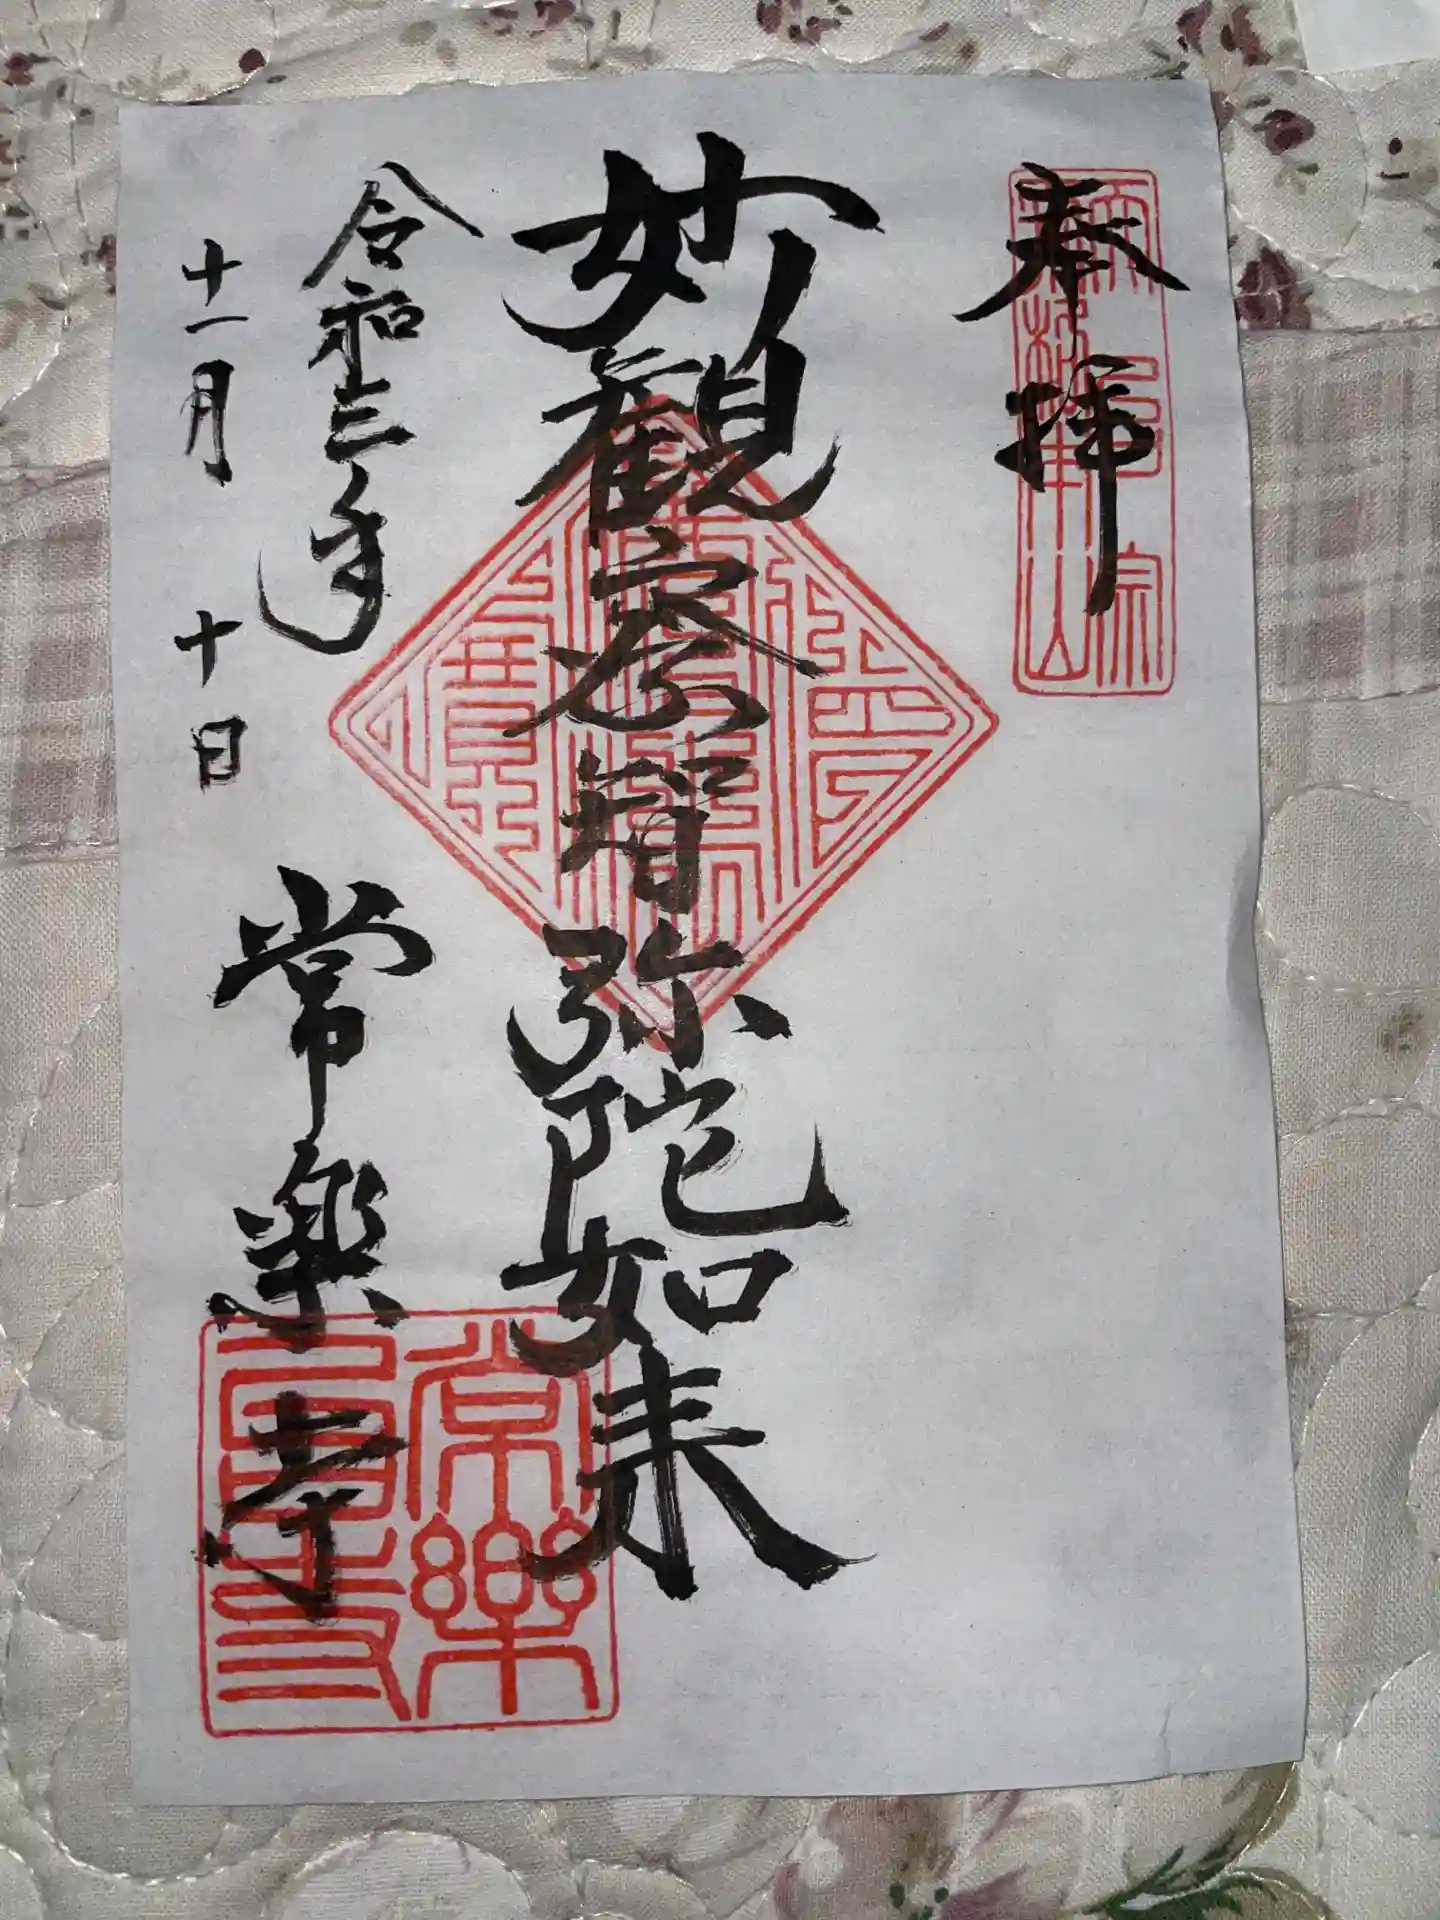 奉拝
妙観察智弥陀如来
令和三年
十一月 十日
常楽寺